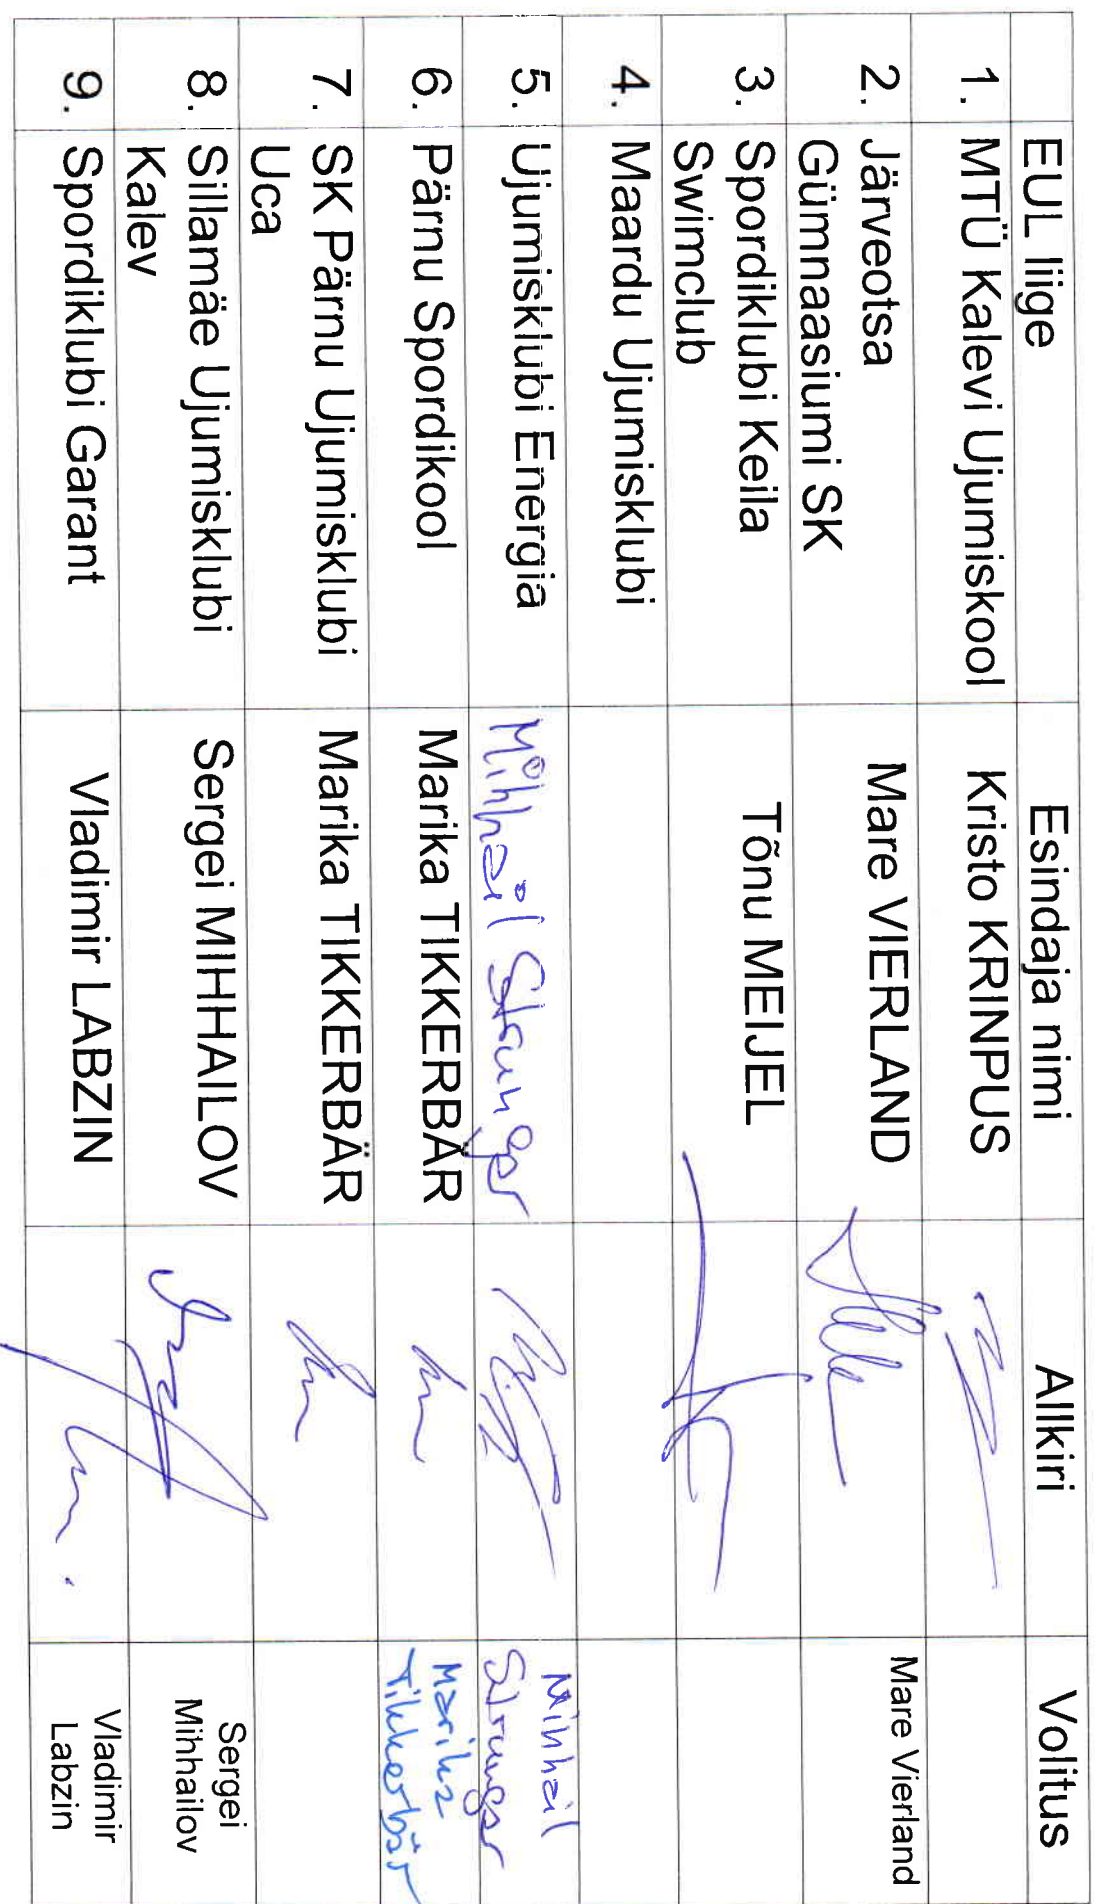 EUL liige Esindaja nimi Allkiri Volitus
1. MTÜ Kalevi Ujumiskool Kristo KRINPUS
2. Järveotsa Mare VIERLAND Mare Vierland
Gümnaasiumi SK
3. Spordiklubi Keila Tõnu MEIJEL
Swimclub
4. Maardu Ujumisklubi
5. Ujumisklubi Energia Mihhail Mihhail
6. Pärnu Spordikool Marika TIKKERBÄR Marika
Tikkerbär
7. SK Pärnu Ujumisklubi Marika TIKKERBÄR
Uca
8. Sillamäe Ujumisklubi Sergei MIHHAILOV Sergei
Kalev Mihhailov
9. Spordiklubi Garant Vladimir LABZIN Vladimir
Labzin